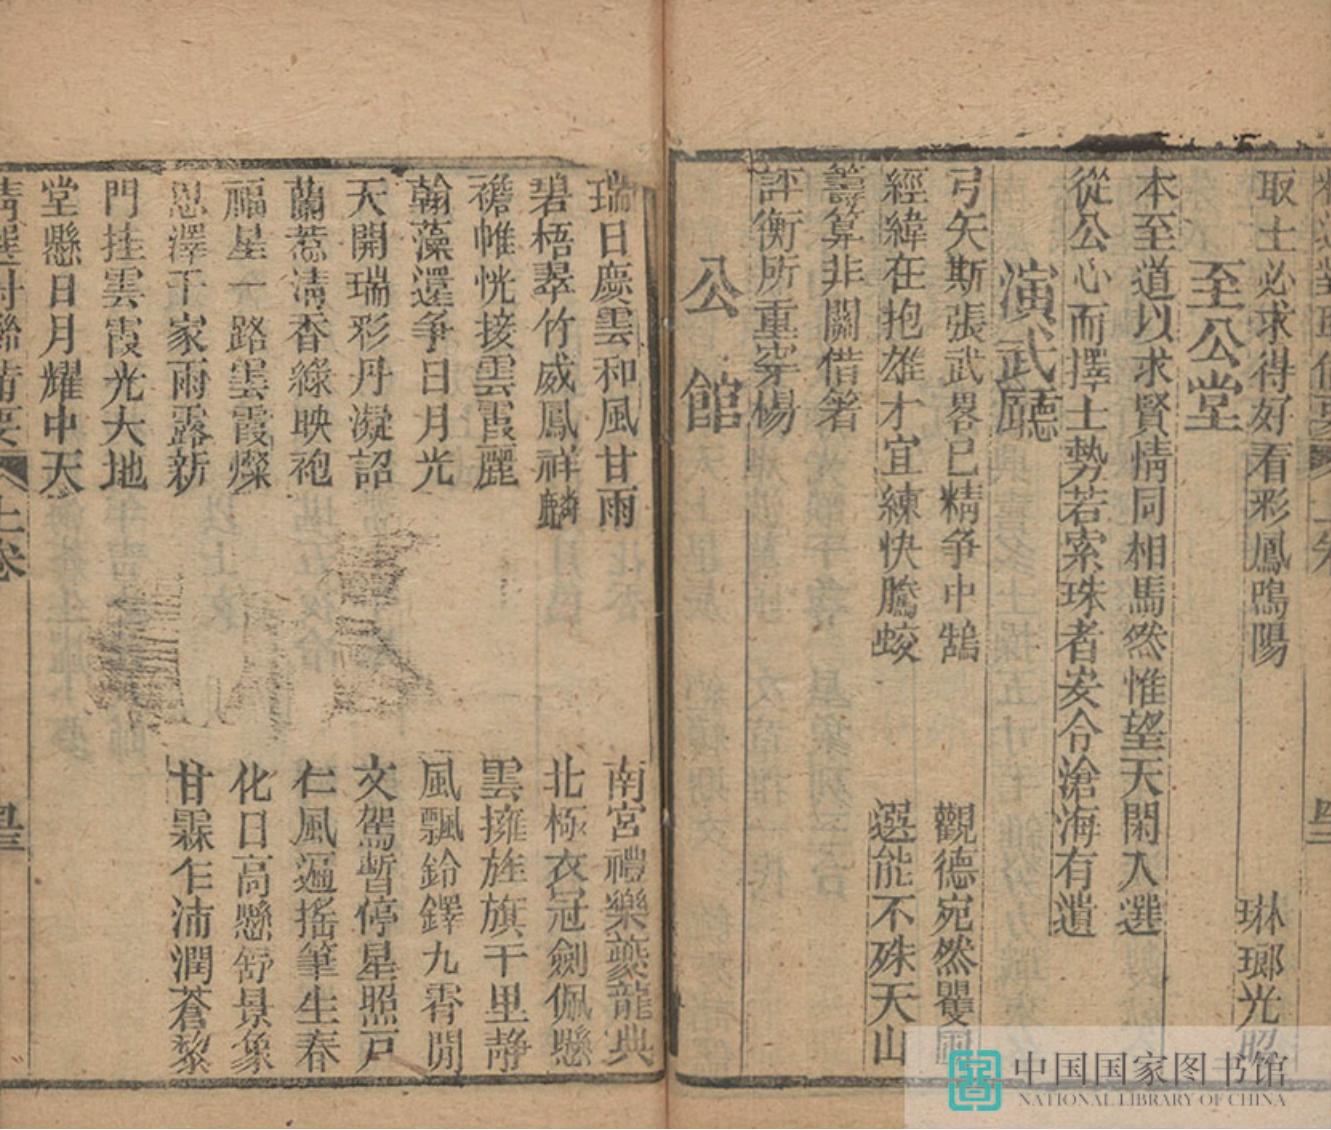 取士必求得好看彩鳳鳴陽 琳瑯光照
至公堂
本至道以求賢情同相馬然惟望天閑入選
從公心而擇士勢若索珠者安令滄海有遺
演武廳
弓矢斯張武畧已精爭中鵠 觀德宛然矍圃
經緯在抱雄才宜練快騰蛟 選能不殊天山
籌算非關借箸
評衡所重穿楊
公館
瑞日慶雲和風甘雨 南宮禮樂夔龍典
碧梧翠竹威鳳祥麟 北極衣冠劍佩懸
襜帷恍接雲霞麗 雲擁旌旗千里靜
翰藻還爭日月光 風飄鈴鐸九霄聞
天開瑞彩丹凝詔 文駕暫停星照戶
蘭惹清香綠映袍 仁風遍搖筆生春
福星一路雲霞燦 化日高懸舒景象
恩澤千家雨露新 甘霖乍沛潤蒼黎
門挂雲霞光大地
堂懸日月耀中天
精選對聯備要 上卷
中国国家图书馆
NATIONAL LIBRARY OF CHINA